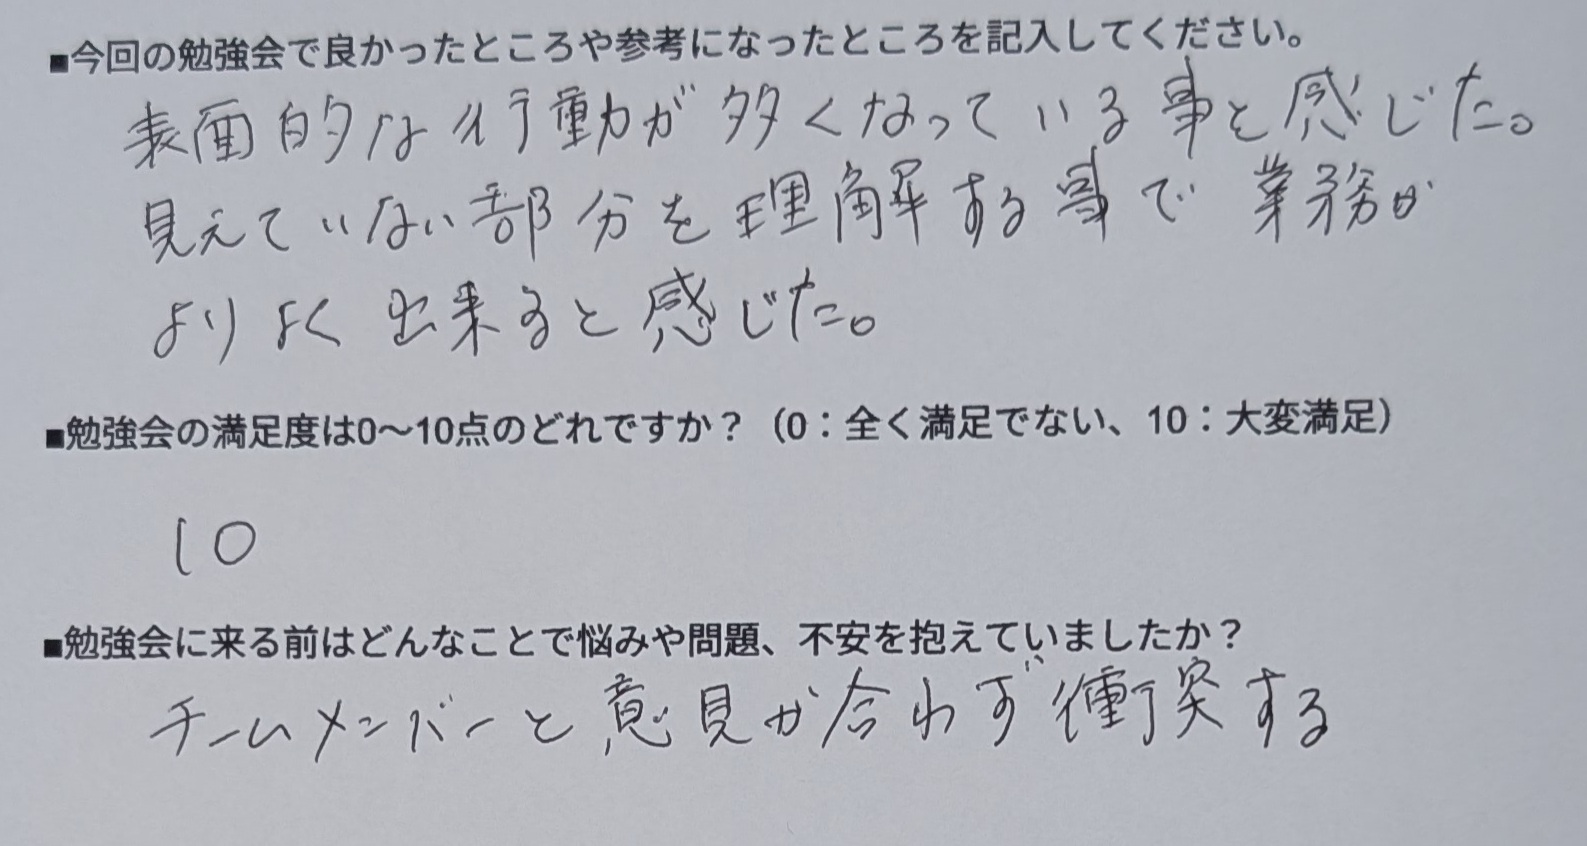 ■今回の勉強会で良かったところや参考になったところを記入してください。
表面的な行動が多くなっている事と感じた。
見えていない部分を理解する事で業務が
よりよく出来ると感じた。
■勉強会の満足度は0～10点のどれですか？（0：全く満足でない、10：大変満足）
10
■勉強会に来る前はどんなことで悩みや問題、不安を抱えていましたか？
チームメンバーと意見が合わず衝突する